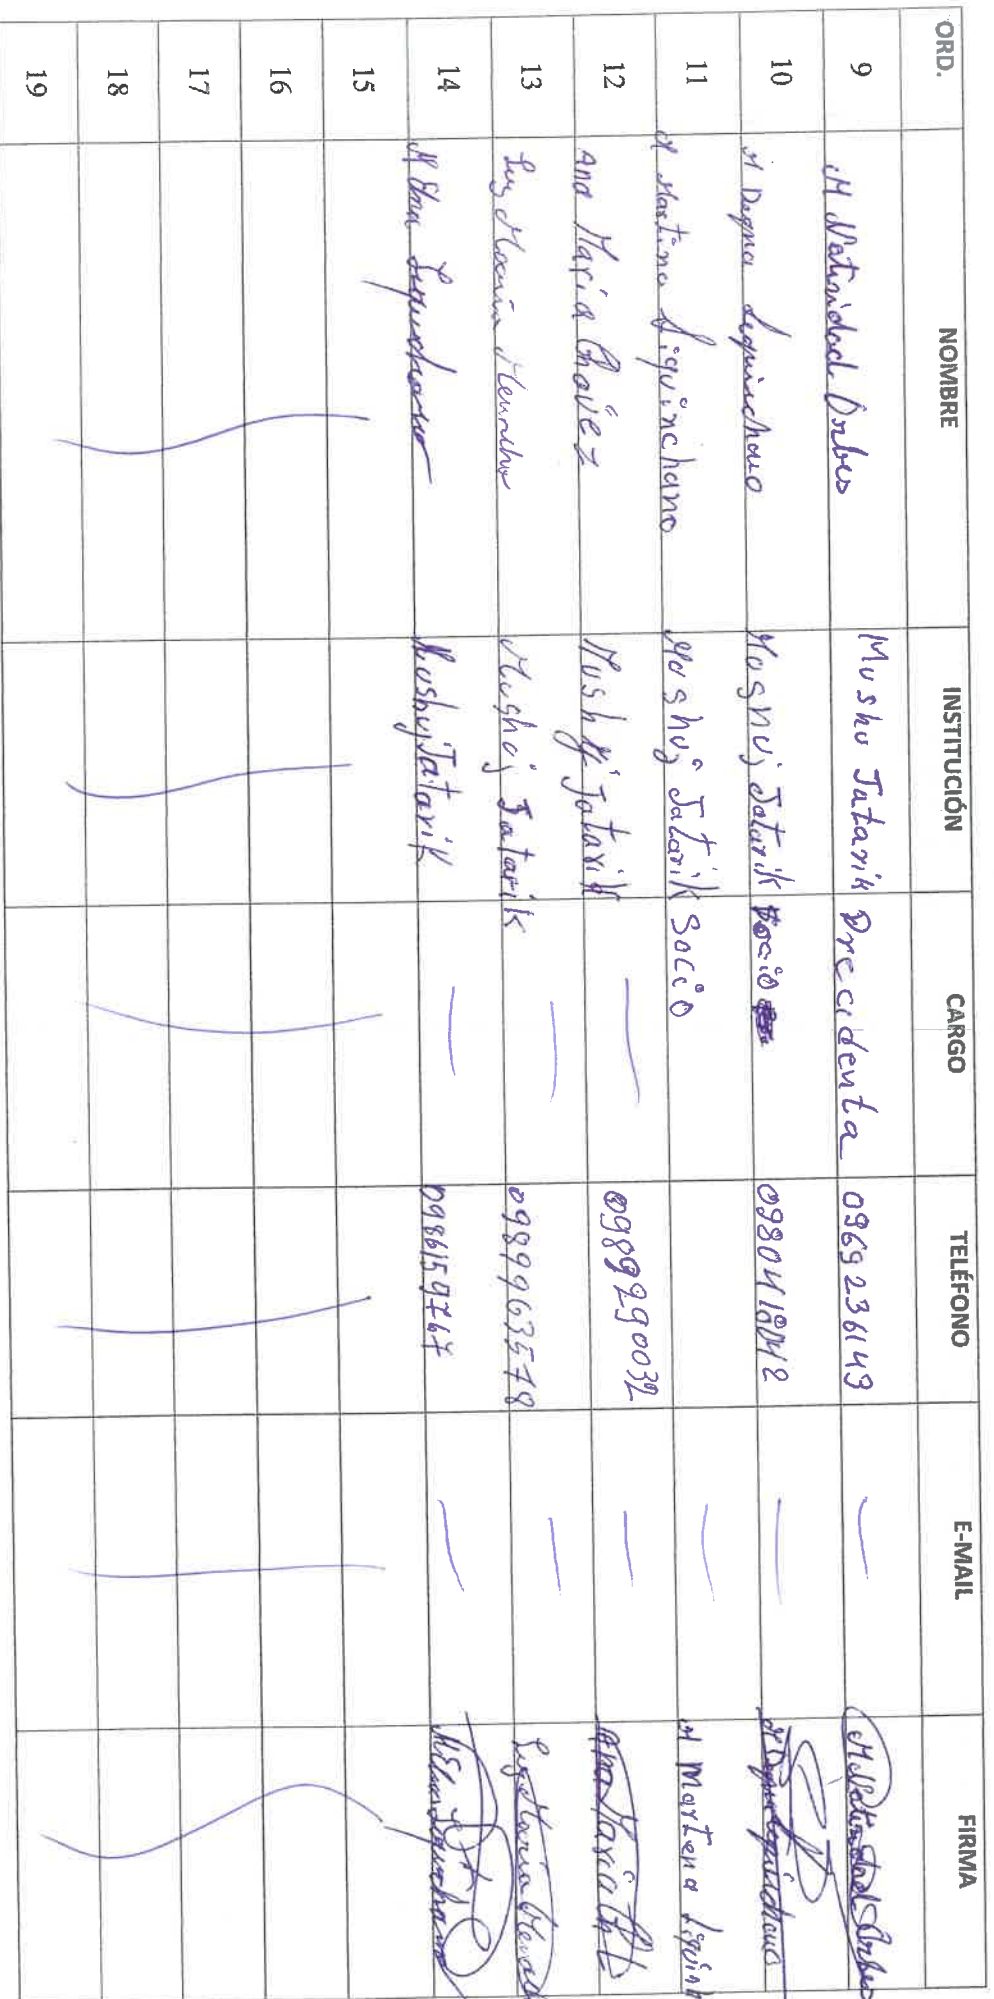 ORD. NOMBRE INSTITUCIÓN CARGO TELÉFONO E-MAIL FIRMA
9 M Natividad Orbes Mushu Jatarik Precidenta 0969236143 — M Natividad Orbes
10 M Digna Liquinchano Mosnuj Jatarik Socio 0980418042 — M Digna Liquinchano
11 M Martina Liquinchano Moshuj Jatarik Socio — M Martena Liquinh
12 Ana María Chavez Mushuj Jatarik — 0989290032 — Ana María Ch
13 Luz María Mushuj Jatarik — 0989963578 — Luz María
14 M Elena Liquinchano Mushuj Jatarik — 0986159767 — M Elena Liquinchano
15
16
17
18
19